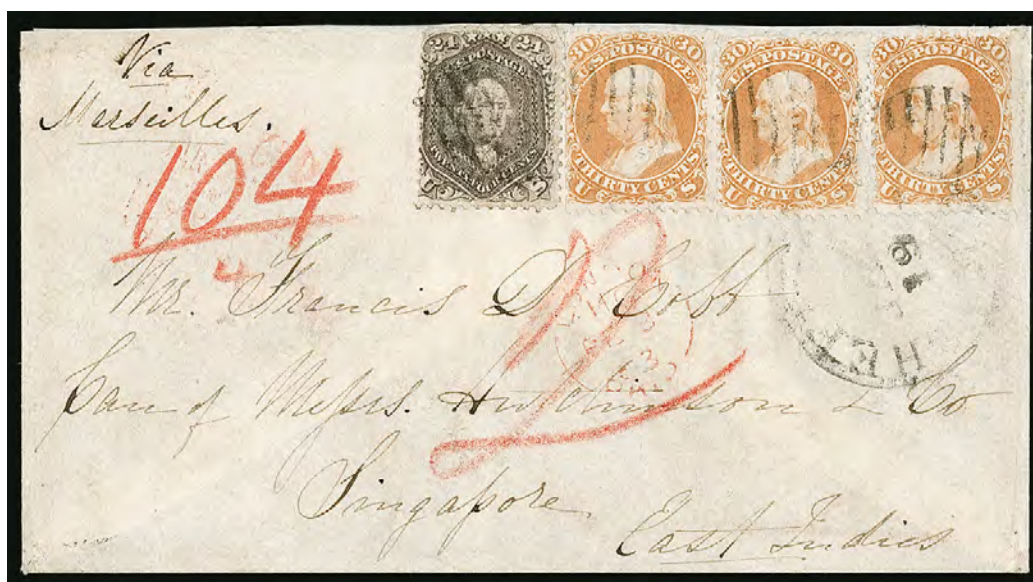 Via
Marseilles.
24 24
U.S. POSTAGE
U S
30 30
U.S. POSTAGE
THIRTY CENTS
U S
30 30
U.S. POSTAGE
THIRTY CENTS
U S
30 30
U.S. POSTAGE
THIRTY CENTS
U S
104
4
19
Mr. Francis D. Cobb
Care of Messrs. Hutchinson & Co
Singapore
East Indies